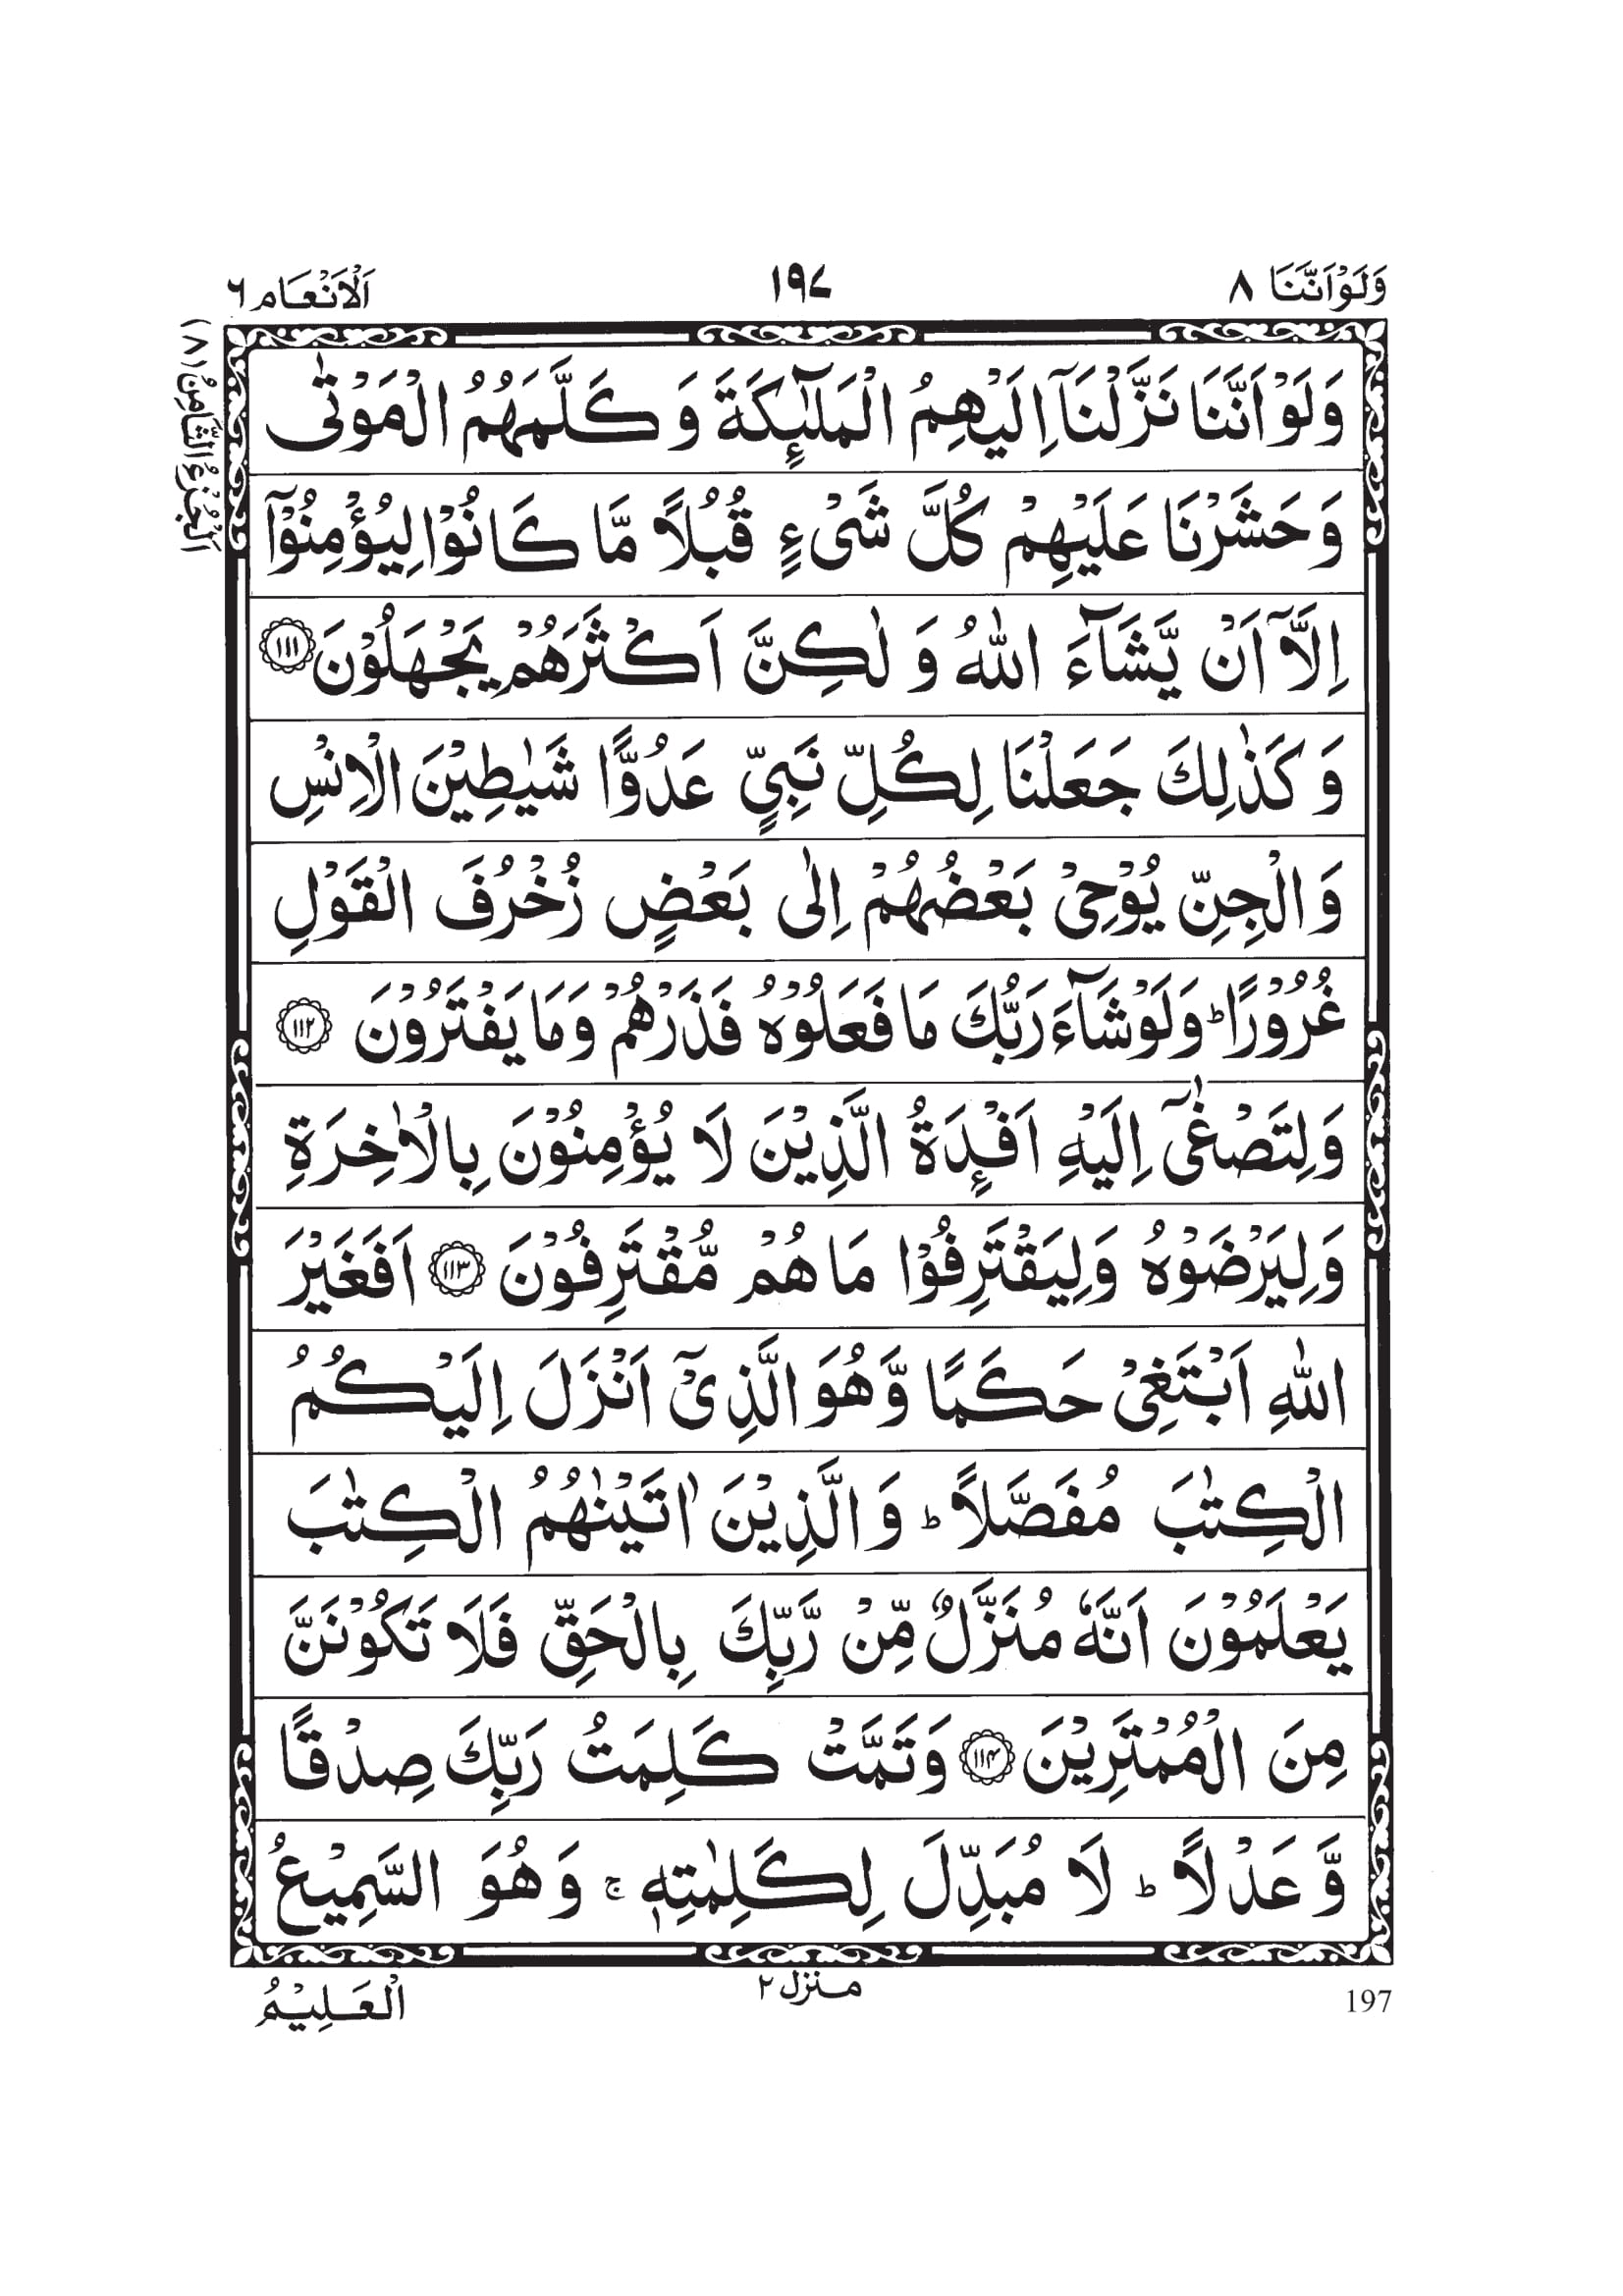 وَلَوْ اَنَّنَا ٨
١٩٧
اَلْاَنْعَام ٦
اَلْجُزْءُ الثَّامِنُ (٨)
وَلَوْ اَنَّنَا نَزَّلْنَاۤ اِلَيْهِمُ الْمَلٰٓئِكَةَ وَ كَلَّمَهُمُ الْمَوْتٰى
وَ حَشَرْنَا عَلَيْهِمْ كُلَّ شَيْءٍ قُبُلًا مَّا كَانُوْا لِيُؤْمِنُوْۤا
اِلَّاۤ اَنْ يَّشَآءَ اللّٰهُ وَ لٰكِنَّ اَكْثَرَهُمْ يَجْهَلُوْنَ ۝١١١
وَ كَذٰلِكَ جَعَلْنَا لِكُلِّ نَبِيٍّ عَدُوًّا شَيٰطِيْنَ الْاِنْسِ
وَ الْجِنِّ يُوْحِيْ بَعْضُهُمْ اِلٰى بَعْضٍ زُخْرُفَ الْقَوْلِ
غُرُوْرًا ؕ وَلَوْ شَآءَ رَبُّكَ مَا فَعَلُوْهُ فَذَرْهُمْ وَمَا يَفْتَرُوْنَ ۝١١٢
وَلِتَصْغٰۤى اِلَيْهِ اَفْـِٕدَةُ الَّذِيْنَ لَا يُؤْمِنُوْنَ بِالْاٰخِرَةِ
وَلِيَرْضَوْهُ وَلِيَقْتَرِفُوْا مَا هُمْ مُّقْتَرِفُوْنَ ۝١١٣ اَفَغَيْرَ
اللّٰهِ اَبْتَغِيْ حَكَمًا وَّهُوَ الَّذِيْۤ اَنْزَلَ اِلَيْكُمُ
الْكِتٰبَ مُفَصَّلًا ؕ وَ الَّذِيْنَ اٰتَيْنٰهُمُ الْكِتٰبَ
يَعْلَمُوْنَ اَنَّهٗ مُنَزَّلٌ مِّنْ رَّبِّكَ بِالْحَقِّ فَلَا تَكُوْنَنَّ
مِنَ الْمُمْتَرِيْنَ ۝١١٤ وَتَمَّتْ كَلِمَتُ رَبِّكَ صِدْقًا
وَّ عَدْلًا ؕ لَا مُبَدِّلَ لِكَلِمٰتِهٖ ۚ وَ هُوَ السَّمِيْعُ
الْعَلِيْمُ
منزل ٢
197